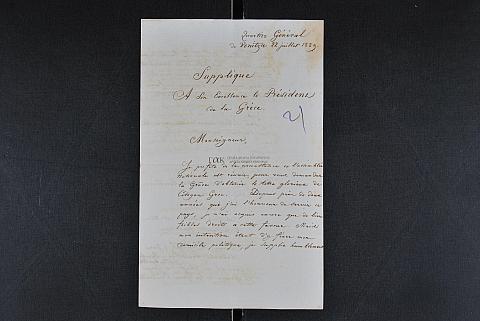 Quartier Général
de Vénitza 22 juillet 1829
Supplique
A Son Excellence le Président
de la Grèce
21
Monseigneur,
Je profite de la circonstance où l'assemblée
Nationale est réunie, pour vous demander
la Grâce d'obtenir le titre glorieux de
Citoyen Grec. Depuis près de deux
années que j'ai l'honneur de servir ce
pays, je n'ai acquis encore que de bien
faibles droits à cette faveur. Mais
mon intention étant d'y fixer mon
domicile politique, je supplie humblement